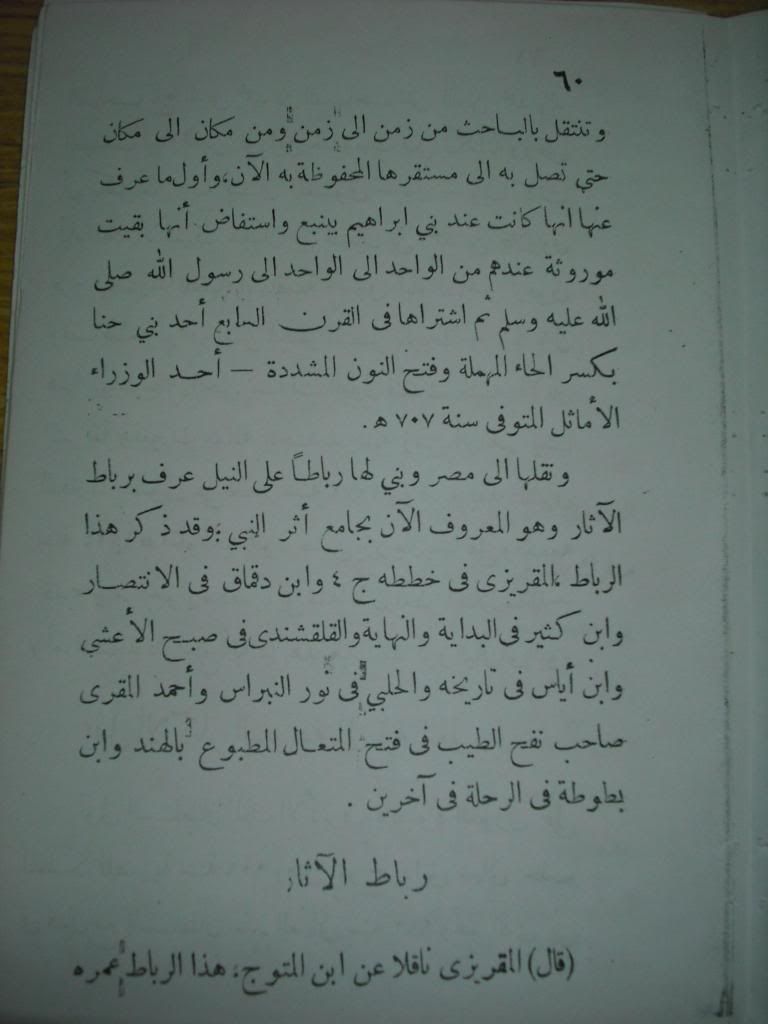 ٦٠
وتنتقل بالباحث من زمن الى زمن ومن مكان الى مكان
حتي تصل به الى مستقرها المحفوظة به الآن،وأول ما عرف
عنها انها كانت عند بني ابراهيم بينبع واستفاض أنها بقيت
موروثة عندهم من الواحد الى الواحد الى رسول الله صلى
الله عليه وسلم ثم اشتراها فى القرن السابع أحد بني حنا
بكسر الحاء المهملة وفتح النون المشددة — أحد الوزراء
الأماثل المتوفى سنة ٧٠٧ ه.
ونقلها الى مصر وبني لها رباطاً على النيل عرف برباط
الآثار وهو المعروف الآن بجامع أثر النبي ،وقد ذكر هذا
الرباط ،المقريزى فى خططه ج ٤ وابن دقماق فى الانتصار
وابن كثير فى البداية والنهاية والقلقشندى فى صبح الأعشي
وابن أياس فى تاريخه والحلبي فى نور النبراس وأحمد المقرى
صاحب نفح الطيب فى فتح المتعال المطبوع بالهند وابن
بطوطة فى الرحلة فى آخرين .
رباط الآثار
(قال) المقريزى ناقلا عن ابن المتوج، هذا الرباط عمره